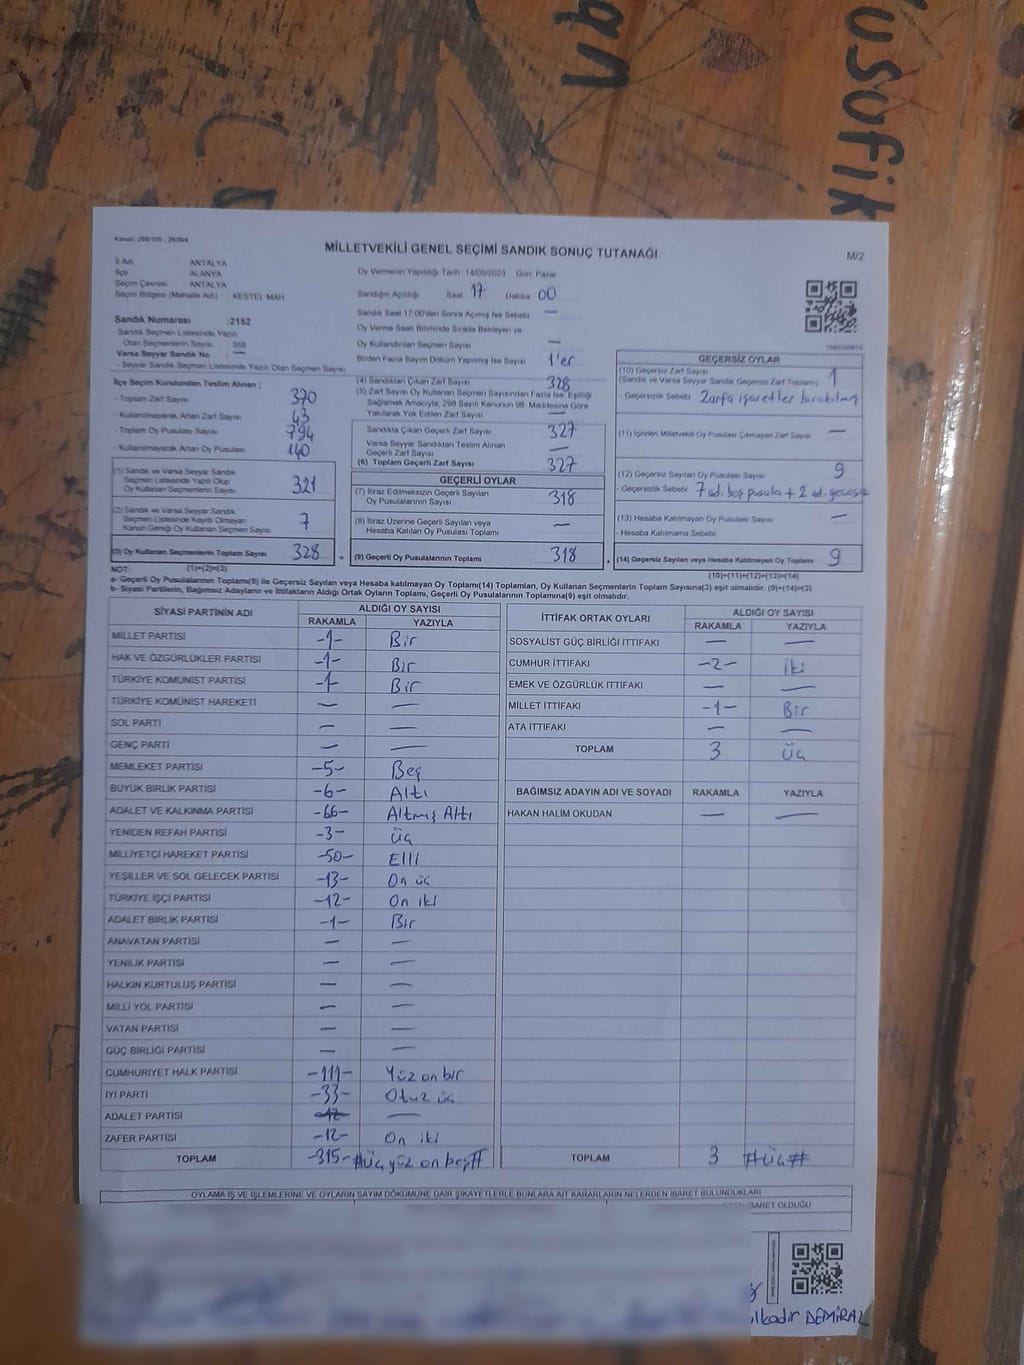 Kanun: 298/105 ; 2839/4
MİLLETVEKİLİ GENEL SEÇİMİ SANDIK SONUÇ TUTANAĞI
M/2
İl Adı ANTALYA
İlçe ALANYA
Seçim Çevresi ANTALYA
Seçim Bölgesi (Mahalle Adı) KESTEL MAH.
Oy Vermenin Yapıldığı Tarih :14/05/2023 Gün: Pazar
Sandığın Açıldığı Saat 17 Dakika 00
Sandık Saat 17:00'den Sonra Açılmış İse Sebebi —
Oy Verme Saati Bitiminde Sırada Bekleyen ve
Oy Kullandırılan Seçmen Sayısı —
Birden Fazla Sayım Döküm Yapılmış İse Sayısı 1'er
Sandık Numarası :2152
- Sandık Seçmen Listesinde Yazılı
Olan Seçmenlerin Sayısı 350
Varsa Seyyar Sandık No —
- Seyyar Sandık Seçmen Listesinde Yazılı Olan Seçmen Sayısı
İlçe Seçim Kurulundan Teslim Alınan ;
- Toplam Zarf Sayısı 370
- Kullanılmayarak Artan Zarf Sayısı 43
- Toplam Oy Pusulası Sayısı 794
- Kullanılmayarak Artan Oy Pusulası 140
(1) Sandık ve Varsa Seyyar Sandık
Seçmen Listesinde Yazılı Olup
Oy Kullanan Seçmenlerin Sayısı 321
(2) Sandık ve Varsa Seyyar Sandık
Seçmen Listesinde Kayıtlı Olmayan
Kanun Gereği Oy Kullanan Seçmen Sayısı 7
(3) Oy Kullanan Seçmenlerin Toplam Sayısı 328
(4) Sandıktan Çıkan Zarf Sayısı 328
(5) Zarf Sayısı Oy Kullanan Seçmen Sayısından Fazla İse, Eşitliği
Sağlamak Amacıyla; 298 Sayılı Kanunun 98. Maddesine Göre
Yakılarak Yok Edilen Zarf Sayısı —
Sandıkta Çıkan Geçerli Zarf Sayısı 327
Varsa Seyyar Sandıktan Teslim Alınan
Geçerli Zarf Sayısı —
(6) Toplam Geçerli Zarf Sayısı 327
GEÇERLİ OYLAR
(7) İtiraz Edilmeksizin Geçerli Sayılan
Oy Pusulalarının Sayısı 318
(8) İtiraz Üzerine Geçerli Sayılan veya
Hesaba Katılan Oy Pusulası Toplamı —
= (9) Geçerli Oy Pusulalarının Toplamı 318
GEÇERSİZ OYLAR
(10) Geçersiz Zarf Sayısı
(Sandık ve Varsa Seyyar Sandık Geçersiz Zarf Toplamı) 1
- Geçersizlik Sebebi Zarfa işaretler bırakılmış
(11) İçinden Milletvekili Oy Pusulası Çıkmayan Zarf Sayısı —
(12) Geçersiz Sayılan Oy Pusulası Sayısı 9
- Geçersizlik Sebebi 7 ad. boş pusula + 2 ad. geçersiz
(13) Hesaba Katılmayan Oy Pusulası Sayısı —
- Hesaba Katılmama Sebebi
+ (14) Geçersiz Sayılan veya Hesaba Katılmayan Oy Toplamı 9
NOT: (1)+(2)=(3)
(10)+(11)+(12)+(13)=(14)
a- Geçerli Oy Pusulalarının Toplamı(9) ile Geçersiz Sayılan veya Hesaba katılmayan Oy Toplamı(14) Toplamları, Oy Kullanan Seçmenlerin Toplam Sayısına(3) eşit olmalıdır. (9)+(14)=(3)
b- Siyasi Partilerin, Bağımsız Adayların ve İttifakların Aldığı Ortak Oyların Toplamı, Geçerli Oy Pusulalarının Toplamına(9) eşit olmalıdır.
SİYASİ PARTİNİN ADI ALDIĞI OY SAYISI
RAKAMLA YAZIYLA
MİLLET PARTİSİ -1- Bir
HAK VE ÖZGÜRLÜKLER PARTİSİ -1- Bir
TÜRKİYE KOMÜNİST PARTİSİ -1- Bir
TÜRKİYE KOMÜNİST HAREKETİ — —
SOL PARTİ — —
GENÇ PARTİ — —
MEMLEKET PARTİSİ -5- Beş
BÜYÜK BİRLİK PARTİSİ -6- Altı
ADALET VE KALKINMA PARTİSİ -66- Altmış Altı
YENİDEN REFAH PARTİSİ -3- üç
MİLLİYETÇİ HAREKET PARTİSİ -50- Elli
YEŞİLLER VE SOL GELECEK PARTİSİ -13- On üç
TÜRKİYE İŞÇİ PARTİSİ -12- On iki
ADALET BİRLİK PARTİSİ -1- Bir
ANAVATAN PARTİSİ — —
YENİLİK PARTİSİ — —
HALKIN KURTULUŞ PARTİSİ — —
MİLLİ YOL PARTİSİ — —
VATAN PARTİSİ — —
GÜÇ BİRLİĞİ PARTİSİ — —
CUMHURİYET HALK PARTİSİ -111- Yüz on bir
İYİ PARTİ -33- Otuz üç
ADALET PARTİSİ —
ZAFER PARTİSİ -12- On iki
TOPLAM -315- #üç yüz on beş#
İTTİFAK ORTAK OYLARI ALDIĞI OY SAYISI
RAKAMLA YAZIYLA
SOSYALİST GÜÇ BİRLİĞİ İTTİFAKI — —
CUMHUR İTTİFAKI -2- iki
EMEK VE ÖZGÜRLÜK İTTİFAKI — —
MİLLET İTTİFAKI -1- Bir
ATA İTTİFAKI — —
TOPLAM 3 üç
BAĞIMSIZ ADAYIN ADI VE SOYADI RAKAMLA YAZIYLA
HAKAN HALİM OKUDAN — —
TOPLAM 3 #üç#
OYLAMA İŞ VE İŞLEMLERİNE VE OYLARIN SAYIM DÖKÜMÜNE DAİR ŞİKAYETLERLE BUNLARA AİT KARARLARIN NELERDEN İBARET BULUNDUKLARI
İBARET OLDUĞU
ulkadir DEMİRAL
usofik